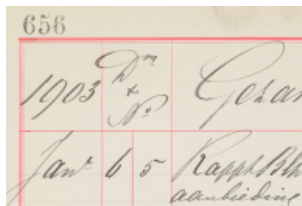 656
1903 Dm & No Gezan
Jan' 6 5 Rapp. Bth
aanbieding